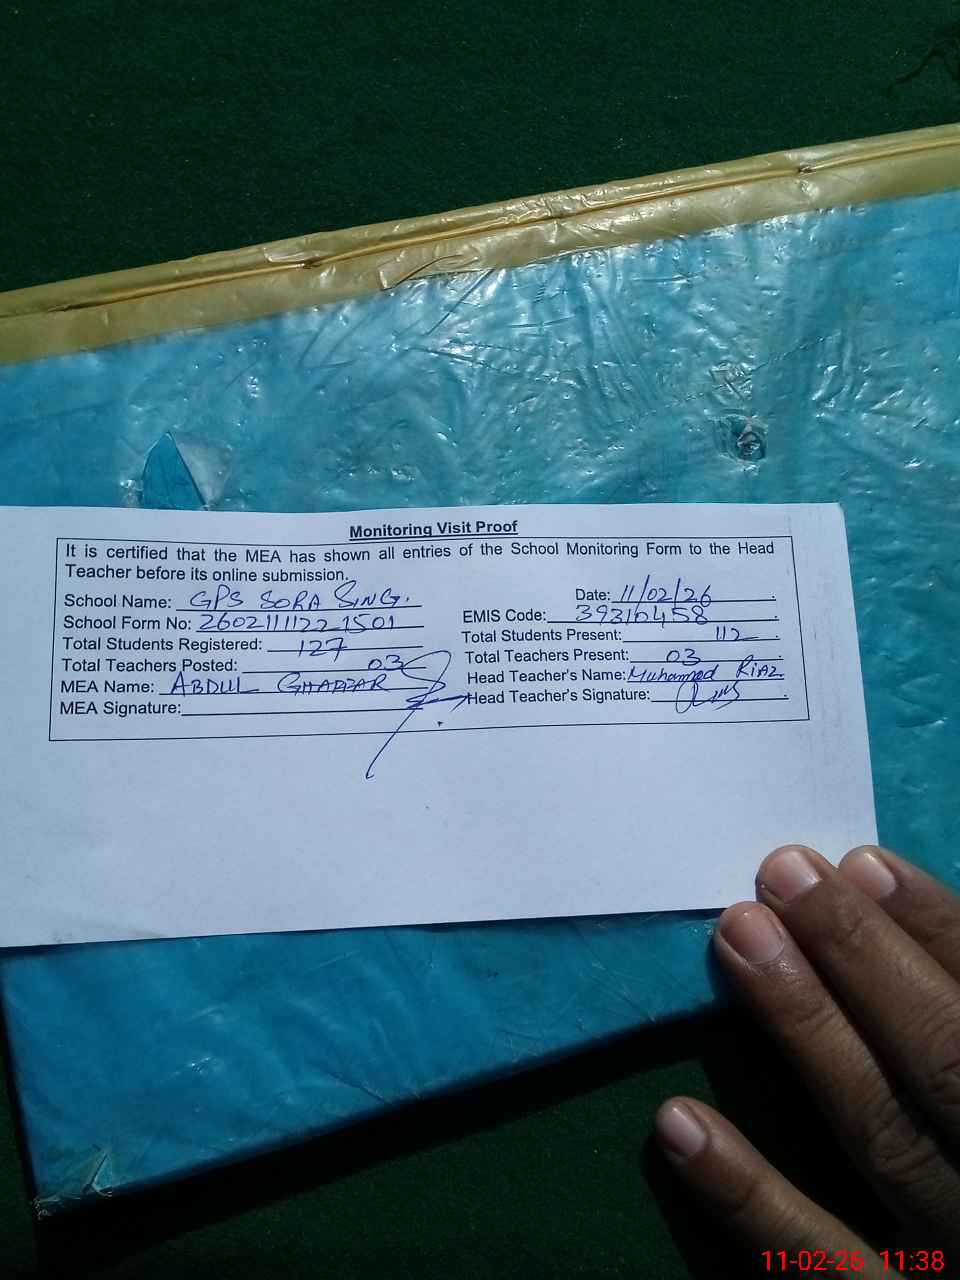 Monitoring Visit Proof
It is certified that the MEA has shown all entries of the School Monitoring Form to the Head
Teacher before its online submission.
School Name: GPS SORA SING. Date: 11/02/26
School Form No: 2602111122 1501 EMIS Code: 39310458
Total Students Registered: 127 Total Students Present: 112
Total Teachers Posted: 03 Total Teachers Present: 03
MEA Name: ABDUL GHAFFAR Head Teacher's Name: Muhammad Riaz
MEA Signature: Head Teacher's Signature:
11-02-26 11:38